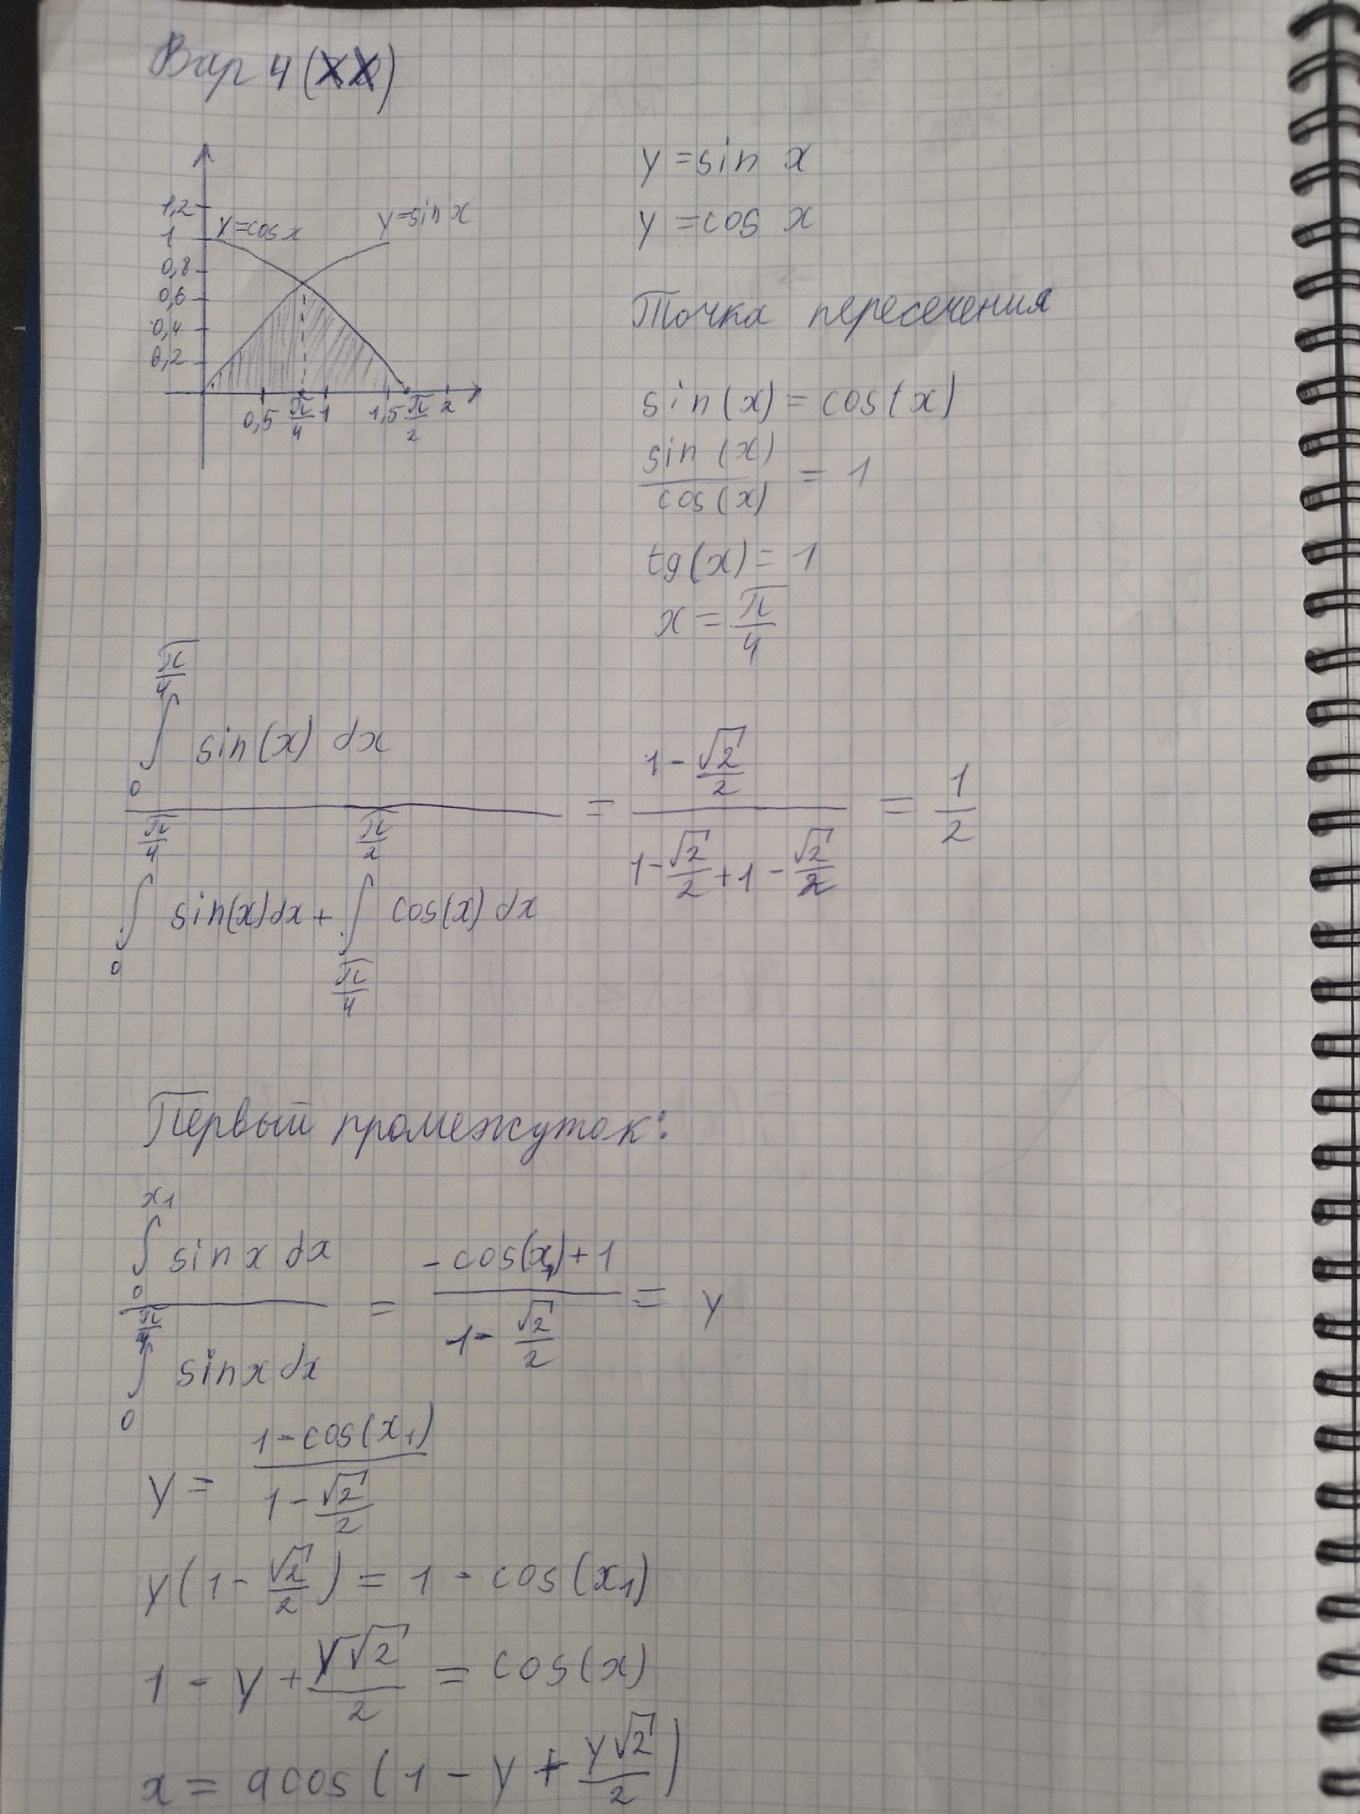 Вар 4 (XX)
1,2
1
0,8
0,6
0,4
0,2
y=cos x
y=sin x
0,5 π/4 1 1,5 π/2 2
y = sin x
y = cos x
Точка пересечения
sin(x) = cos(x)
sin(x)/cos(x) = 1
tg(x) = 1
x = π/4
∫₀^(π/4) sin(x) dx / (∫₀^(π/4) sin(x)dx + ∫_(π/4)^(π/2) cos(x) dx) = (1 - √2/2)/(1 - √2/2 + 1 - √2/2) = 1/2
Первый промежуток:
∫₀^(x₁) sin x dx / ∫₀^(π/4) sin x dx = (-cos(x₁)+1)/(1 - √2/2) = y
y = (1 - cos(x₁))/(1 - √2/2)
y(1 - √2/2) = 1 - cos(x₁)
1 - y + y√2/2 = cos(x)
x = acos(1 - y + y√2/2)